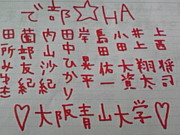 で部☆HA
上西 将司
井上 翔太
小田 大資
島田 佑一
岸 昇平
田中ひかり
内山 沙紀
薗部 友紀
田所 みゆき
♡大阪青山大学♡